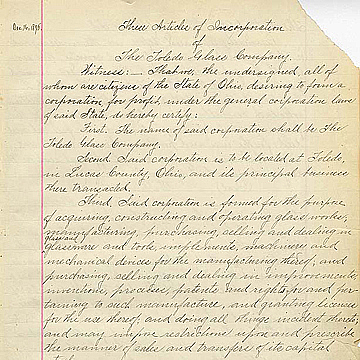 Three Articles of Incorporation
of
The Toledo Glass Company.
Witness:— That we, the undersigned, all of
whom are citizens of the State of Ohio, desiring to form a
corporation for profit, under the general corporation laws
of said State, do hereby certify:
First. The name of said corporation shall be The
Toledo Glass Company.
Second. Said corporation is to be located at Toledo,
in Lucas County, Ohio, and its principal business
there transacted.
Third. Said corporation is formed for the purpose
of acquiring, constructing and operating glass works,
manufacturing, purchasing, selling and dealing in
glass and
glassware and tools, implements, machinery and
mechanical devices for the manufacturing thereof, and
purchasing, selling and dealing in improvements,
inventions, processes, patents and rights for and per-
taining to such manufacture, and granting licenses
for the use thereof, and doing all things incident thereto,
and may impose restrictions upon and prescribe
the manner of sales and transfers of its capital